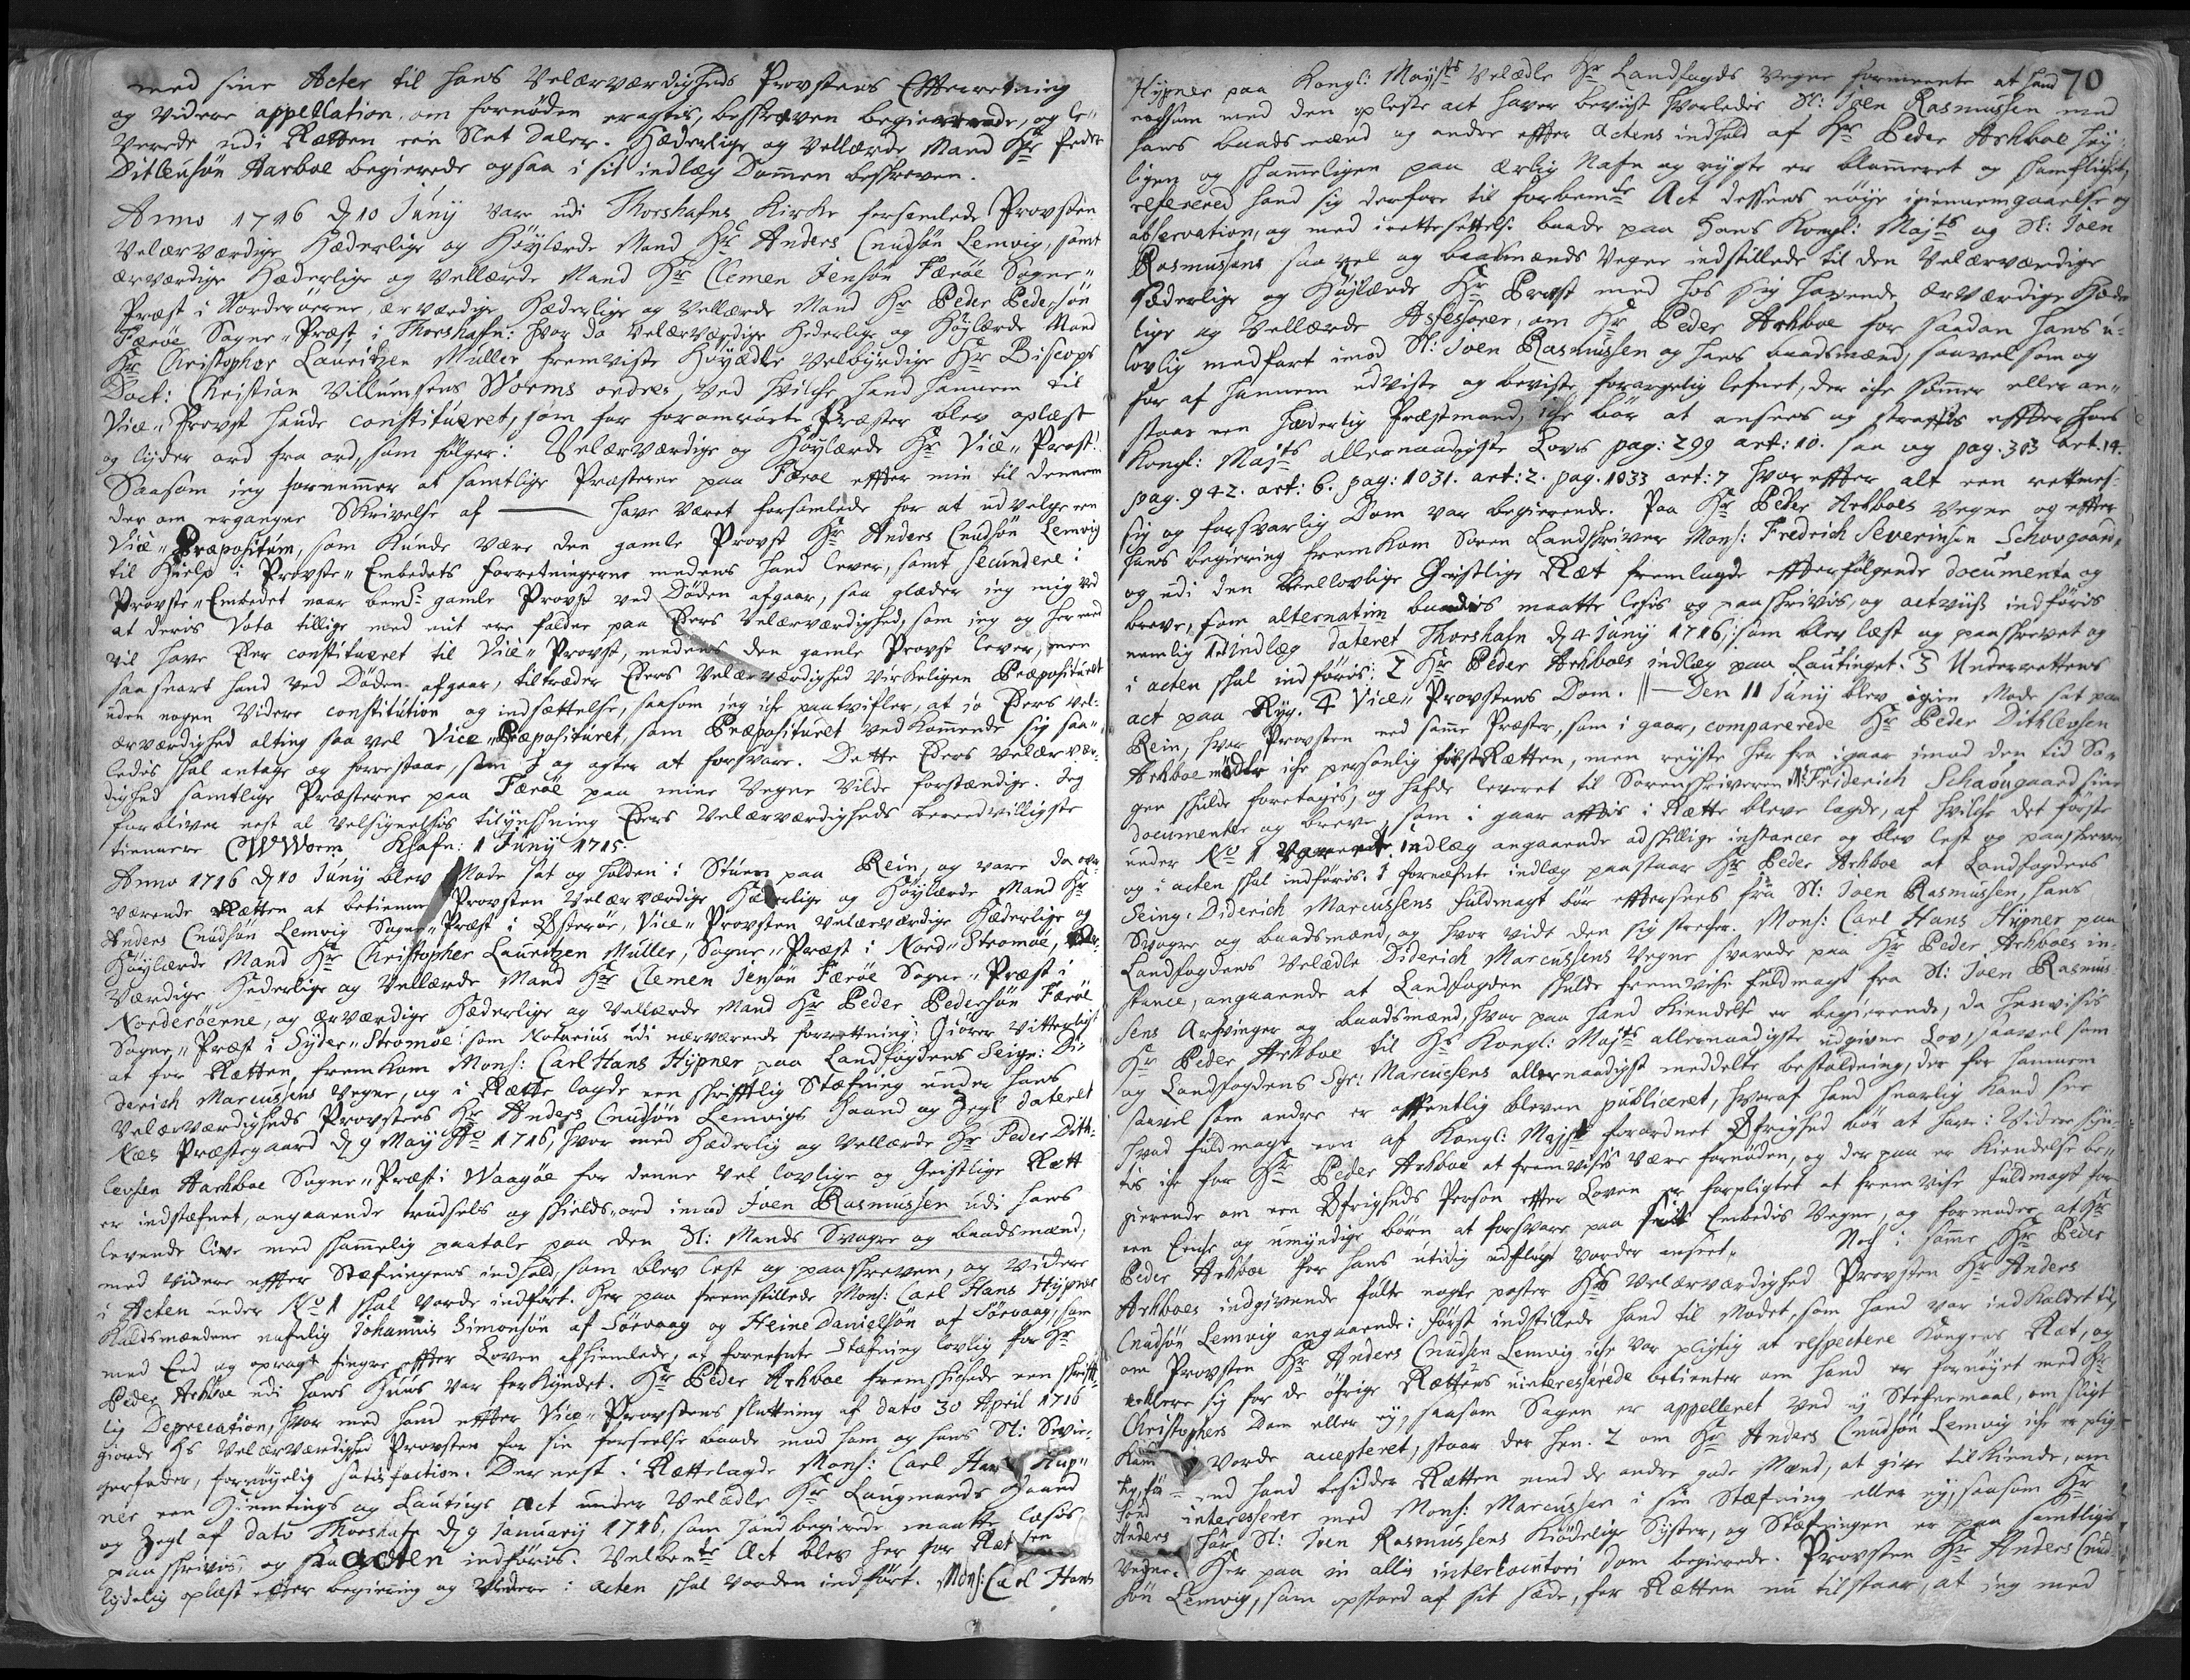 med sine Acter til hans Velærværdigheds Provstens Efterretning
og videre appellation, om fornöden eragtes, beskreven begierende, og le-
verede udi Rætten een Slet Daler. Hæderlige og Vellærde Mand Hr Peder
Ditleusön Aarboe begierede ogsaa i sit indlæg Dommen beskreven.
Anno 1716 d. 10 Junij vare udi Thorshafns Kirke forsamlede Provsten
Velærværdige Hæderlige og Höylærde Mand Hr Anders Cnudsön Lemvig, samt
ærværdige Hæderlige og Vellærde Mand Hr Clemen Jensön Færöe Sogne-
Præst i Norderöerne, ærværdige Hæderlige og Vellærde Mand Hr Peder Pedersön
Færöe Sogne-Præst i Thorshafn: hvor da Velærværdige Hederlige og Höylærde Mand
Hr Christopher Lauritzen Müller fremviste Höyædle Velbyrdige Hr Biscops
Doct: Christian Villumsens Worms ordres, ved hvilche hand hannem til
Vice-Provst hafde constitueret, som for foromrörte Præster blev oplæst
og lyder ord fra ord, som fölger: Velærværdige og Höylærde Hr Vice-Provst!
Saasom jeg fornemmer at samtlige Præsterne paa Færöe effter min til dennem
der om ergangne Skrivelse af ——— have været forsamlede for at udvelge een
Vice-Præpositum, som kunde være den gamle Provst Hr Anders Cnudsön Lemvig
til Hielp i Provste-Embedets forretningerne medens hand lever, samt secundere i
Provste-Embedet naar bemte gamle Provst ved Döden afgaar, saa glæder jeg mig ved
at deris Vota tillige med mit ere faldne paa Eders Velærværdighed, som jeg og hermed
vil have Eder constitueret til Vice-Provst, medens den gamle Provst lever, men
saa snart hand ved Döden afgaar, tiltræder Eders Velærværdighed virkeligen Præposituret
uden nogen videre constitution og indsættelse, saasom jeg iche paatvifler, at jo Eders vel-
ærværdighed alting saa vel Vice-Præposituret, som Præposituret vedkommende sig saa-
ledis skal antage og forrestaae, som I og agter at forsvare. Dette Eders Velærvær-
dighed samtlige Præsterne paa Færöe paa mine Vegne vilde forstændige. Jeg
forbliver nest al Velsignelsis tilynskning Eders Velærværdigheds beredvilligste
tiennere CWWorm Khafn: 1 Junij 1715.
Anno 1716 d. 10 Junij blev Mode sat og holden i Stuen paa Rein, og vare da over
værende Rætten at betienne Provsten Velærværdige Hæderlige og Höylærde Mand Hr
Anders Cnudsön Lemvig Sogne-Præst i Österöe, Vice-Provsten velærværdige Hæderlige og
Höylærde Mand Hr Christopher Lauritzen Müller, Sogne-Præst i Nord-Stromöe, ær-
værdige Hederlige og Vellærde Mand Hr Clemen Jensön Færöe Sogne-Præst i
Norderöerne, og ærværdige Hæderlige og Vellærde Mand Hr Peder Pedersön Færöe
Sogne-Præst i Syder-Stromöe: som Notarius udi nærværende forrettning; Giörer vitterligt
at for Rætten fremkom Mons: Carl Hans Hÿpner paa Landfogdens Seign: Di-
derich Marcussens Vegne, og i Rætte lagde een skrifftlig Stæfning under hans
Velærværdigheds Provstens Hr Anders Cnudsön Lemvigs Haand og Zegl dateret
Næs Præstegaard d. 9 Maij Ao 1716, hvor med Hæderlig og Vellærde Hr Peder Dith-
levsen Aarhboe Sogne-Præst i Waagöe for denne vel lovlige og Geistlige Rætt
er indstæfnet, angaaende trudsels og skields-ord imod Joen Rasmussen udi hans
levende live med skammelig paatale paa den Sl: Mands Svogre og baadsmænd,
med videre effter Stæfningens indhold, som blev lest og paaskreven, og videre
i Acten under No 1 skal vorde indfört. Her paa fremstillede Mons: Carl Hans Hÿpner
Kaldsmændene nafnlig Johannis Simonsön af Sörvaag og Heine Danielsön af Sörvaag, som
med Eed og opragt fingre effter Loven afhiemlede, at fornefnte Stæfning lovlig for Hr
Peder Arhboe udi hans Huus var forkyndet. Hr Peder Arhboe fremskichede een skrifft-
lig Deprecation, hvor med hand effter Vice-Provstens sluttning af dato 30 April 1716
giorde Hs Velærværdighed Provsten for sin forseelse baade mod ham og hans Sl: Svie-
gerfader, fornöyelig satisfaction. Dernest i Rættelagde Mons: Carl Hans Hyp-
ner een Hiemtings og Lautings Act under Velædle Hr Laugmands Haand
og Zegl af dato Thorshafn d. 9 January 1716, som hand begierede maatte læses
paaskrivis, og i acten indföris. Velbemte Act blev her for Retten
lydelig oplæst effter begiering og videre i acten skal vorden indfört. Mons: Carl Hans
70
Hÿpner paa Kongl: Maysts Velædle Hr Landfogds Vegne formeente at hand
nocksom med den oplæste act haver bevist hvorledis Sl: Joen Rasmussen med
hans baadsmænd og andre effter actens indhold af Hr Peder Arhboe höy-
ligen og skammeligen paa ærlig Nafn og rygte er blammeret og skamflichet,
refererer hand sig derfore til forbemte Act dessens nöye igiennemgaaelse og
observation, og med irettesettelse baade paa Hans Kongl: Majts og Sl: Joen
Rasmussens saa vel og baadsmænds Vegne indstillede til den Velærværdige
Hæderlige og Höylærde Hr Provst med hos sig havende ærværdige Hæder
lige og Vellærde Assessorer, om Hr Peder Arhboe for saadan hans u-
lovlig medfart imod Sl: Joen Rasmussen og hans baadsmænd, saavel som og
for af hannem udviste og beviste forargelig lefnet, der iche sömmer eller an-
staar een Hæderlig Præstmand, iche bör at ansees og straffis effter Hans
Kongl: Majts allernaadigste Lovs pag: 299 art: 10. saa og pag. 303 art. 14.
pag. 942. art: 6. pag: 1031. art: 2. pag. 1033 art: 7 hvor effter alt een rettmes-
sig og forsvarlig Dom var begierende. Paa Hr Peder Arhboes Vegne og effter
hans begiering fremkom Soren Landskriver Mons: Fredrich Severinsen Schougaard,
og udi den Vellovlige Geistlige Ræt fremlagde effterfölgende documenta og
breve, som alternatim baades maatte lesis og paaskrivis, og actviiss indföris
nemlig 1 indlæg dateret Thorshafn d. 4 Junij 1716, som blev læst og paaskrevet og
i acten skal indföris: 2 Hr Peder Arhboes indlæg paa Lautinget. 3 Underrettens
act paa Ryg. 4 Vice-Provstens Dom. || — Den 11 Junij blev igien Mode sat paa
Rein, hvor Provsten med samme Præster, som i gaar, comparerede Hr Peder Dithlevsen
Arhboe mödte iche personlig for Rætten, men reyste her fra igaar imod den tid Sa-
gen skulde foretages, og hafde leveret til Sorenskriveren Mr Friderich Schaougaard sine
documenter og breve, som i gaar afftis i Rætte bleve lagde, af hvilche det förste
under No 1 indlæg angaaende adskillige instancer og blev lest og paaskreven
og i acten skal indföris. I fornæfnte indlæg paastaar Hr Peder Arhboe at Landfogdens
Seing: Diderich Marcussens fuldmagt bör efftersees fra Sl: Joen Rasmussen, hans
Svogre og baadsmænd, og hvor vidt den sig strecher. Mons: Carl Hans Hÿpner paa
Landfogdens Velædle Diderich Marcussens Vegne svarede paa Hr Peder Arhboes in-
stance, angaaende at Landfogden skulde fremvise fuldmagt fra Sl: Joen Rasmus-
sens Arfvinger og baadsmænd, hvor paa hand Kiendelse er begierende, da henvisis
Hr Peder Arhboe til Hs Kongl: Majts allernaadigste udgivne Lov, saavel som
og Landfogdens Sgr: Marcussens allernaadigst meddelte bestaldning, der for hannem
saavel som andre er offentlig bleven publiceret, hvoraf hand snarlig kand see
hvad fuldmagt een af Kongl: Majst forordnet Öfrighed bör at have: Videre syn-
tes iche for Hr Peder Arhboe at fremvisis være fornöden, og der paa er Kiendelse be-
gierende om een Öfrigheds Person effter Loven er forpligtet at fremvise fuldmagt for
een Enche og umyndige börn at forsvare paa sit Embedis Vegne, og formoder at Hr
Peder Arhboe for hans utidig udflugt vorder anseet. Noch i samme Hr Peder
Arhboes indgivende fulte nogle poster Hs Velærværdighed Provsten Hr Anders
Cnudsön Lemvig angaaende: först indstillede hand til Modet, som hand var indkaldet til,
om Provsten Hr Anders Cnudsen Lemvig iche var pligtig at respectere Kongens Ræt, og
erklere sig for de öfrige Rettens uinteresserede betienter om hand er fornöyet med Hr
Christophers Dom eller ey, saasom Sagen er appelleret ved ny Stefnemaal, om sligt
Kand vorde accepteret, staar der hen. 2 om Hr Anders Cnudsön Lemvig iche er plig-
tig, för end hand besidder Rætten med de andre gode Mænd, at give tilkiende, om
hand interesserer med Mons: Marcussen i sin Stæfning eller ey, saasom Hr
Anders har Sl: Joen Rasmussens Kiödelige Syster, og Stæfningen er paa samtliges
Vegne. Her paa in allis interlocutori Dom begierede. Provsten Hr Anders Cnud-
sön Lemvig, som opstoed af sit sæde, for Rætten nu tilstaar, at jeg med